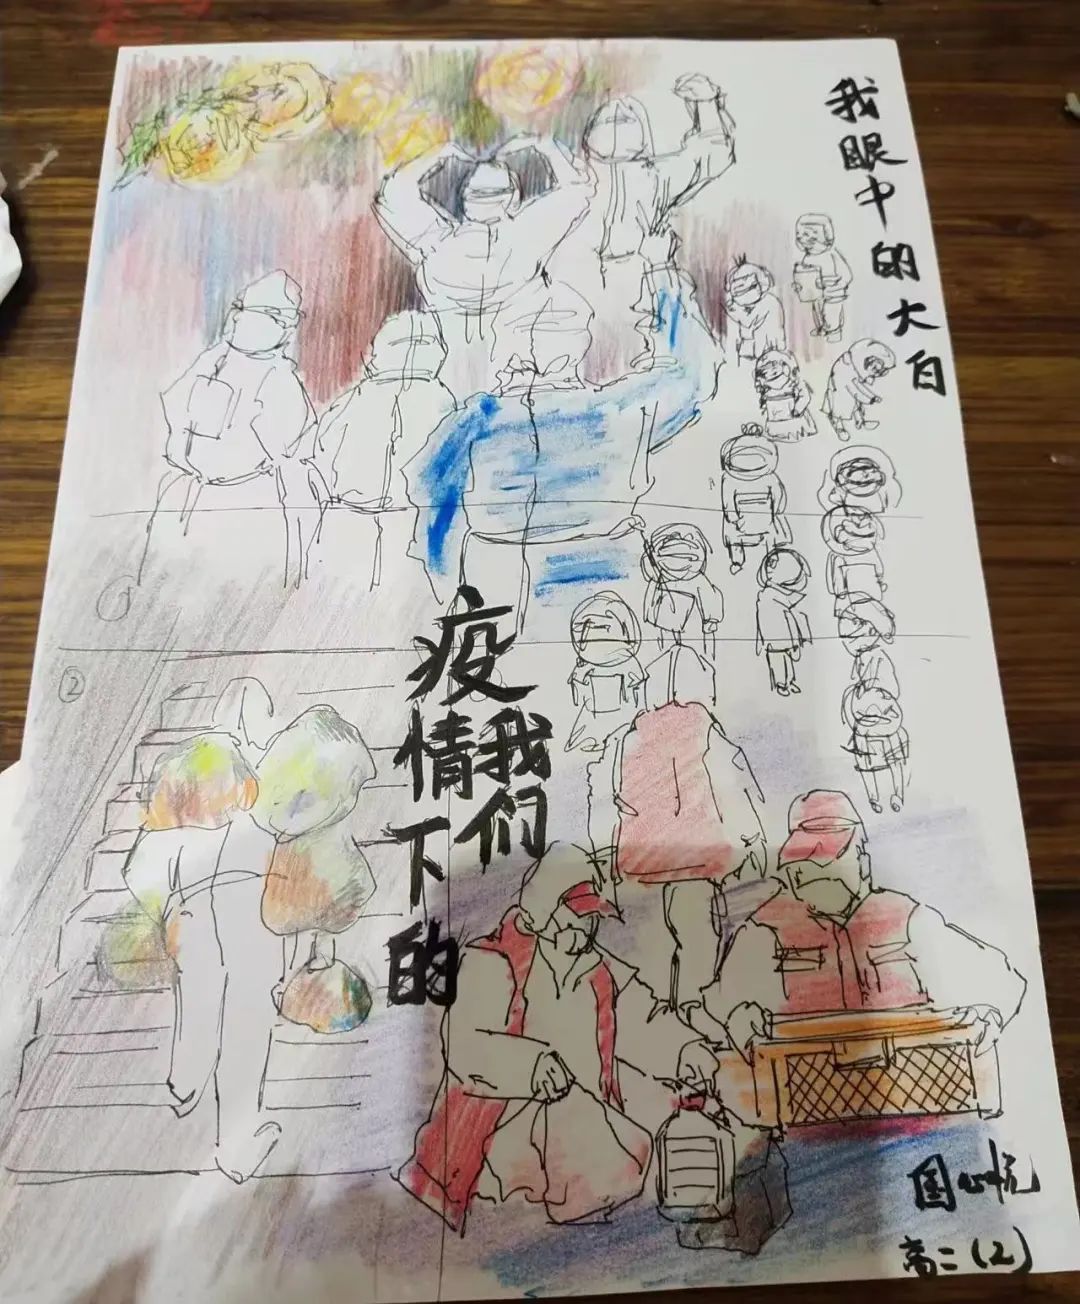 我眼中的大白
①
②
疫情下的
我们
国心悦
高二(2)